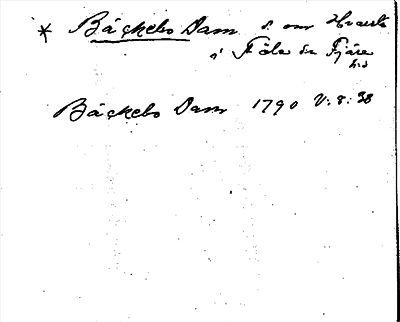 * Bäckebo Dam s. om Hvarsta
i Föla sn Fjäre
hd
Bäckebo Dam 1790 V: 8: 38